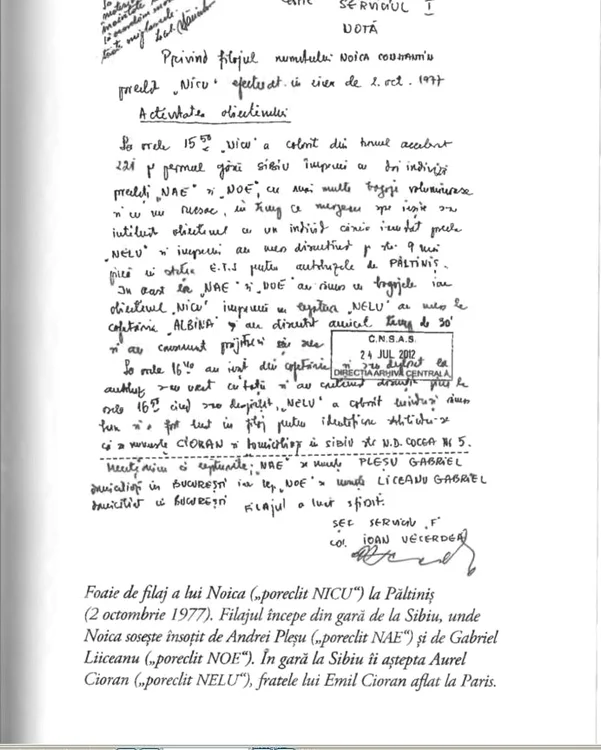 SERVICIUL I
NOTĂ
Privind filajul numitului NOICA CONSTANTIN
poreclit „NICU" efectuat în ziua de 2. oct. 1977
Activitatea obiectivului
La orele 15⁵⁰ „NICU" a coborît din trenul accelerat
221 pe peronul gării SIBIU împreună cu doi indivizi
porecliți „NAE" și „NOE", cu mai multe bagaje voluminoase
și cu un rucsac, în timp ce mergeau spre ieșire s-a
întîlnit obiectivul cu un individ căruia i s-a dat porecla
„NELU" și împreună au mers pe str. 9 mai
pînă în stația E.T.S pentru autobuzele de PĂLTINIȘ.
În acest loc „NAE" și „NOE" au rămas cu bagajele iar
obiectivul „NICU" împreună cu legătura „NELU" au mers la
cofetăria „ALBINA" și au discutat amical timp de 30'
și au consumat prăjituri
C.N.S.A.S.
24 JUL 2012
DIRECȚIA ARHIVA CENTRALĂ
La orele 16⁴⁰ au ieșit din cofetărie
autobuz s-au urcat cu toții și au discutat pînă la
orele 16⁵⁵ cînd „NELU" a coborît
fost luat în filaj pentru identificare stabilindu-se
că se numește CIORAN și domiciliază în SIBIU str. N.D. COCEA Nr 5.
Menționăm că legăturile: „NAE" se numește PLEȘU GABRIEL
domiciliat în BUCUREȘTI iar leg. „NOE" se numește LIICEANU GABRIEL
domiciliat în BUCUREȘTI FILAJUL a luat sfîrșit.
ȘEF SERVICIU „F"
Col. IOAN VECERDEA
Foaie de filaj a lui Noica („poreclit NICU") la Păltiniș
(2 octombrie 1977). Filajul începe din gară de la Sibiu, unde
Noica sosește însoțit de Andrei Pleșu („poreclit NAE") și de Gabriel
Liiceanu („poreclit NOE"). În gară la Sibiu îi aștepta Aurel
Cioran („poreclit NELU"), fratele lui Emil Cioran aflat la Paris.